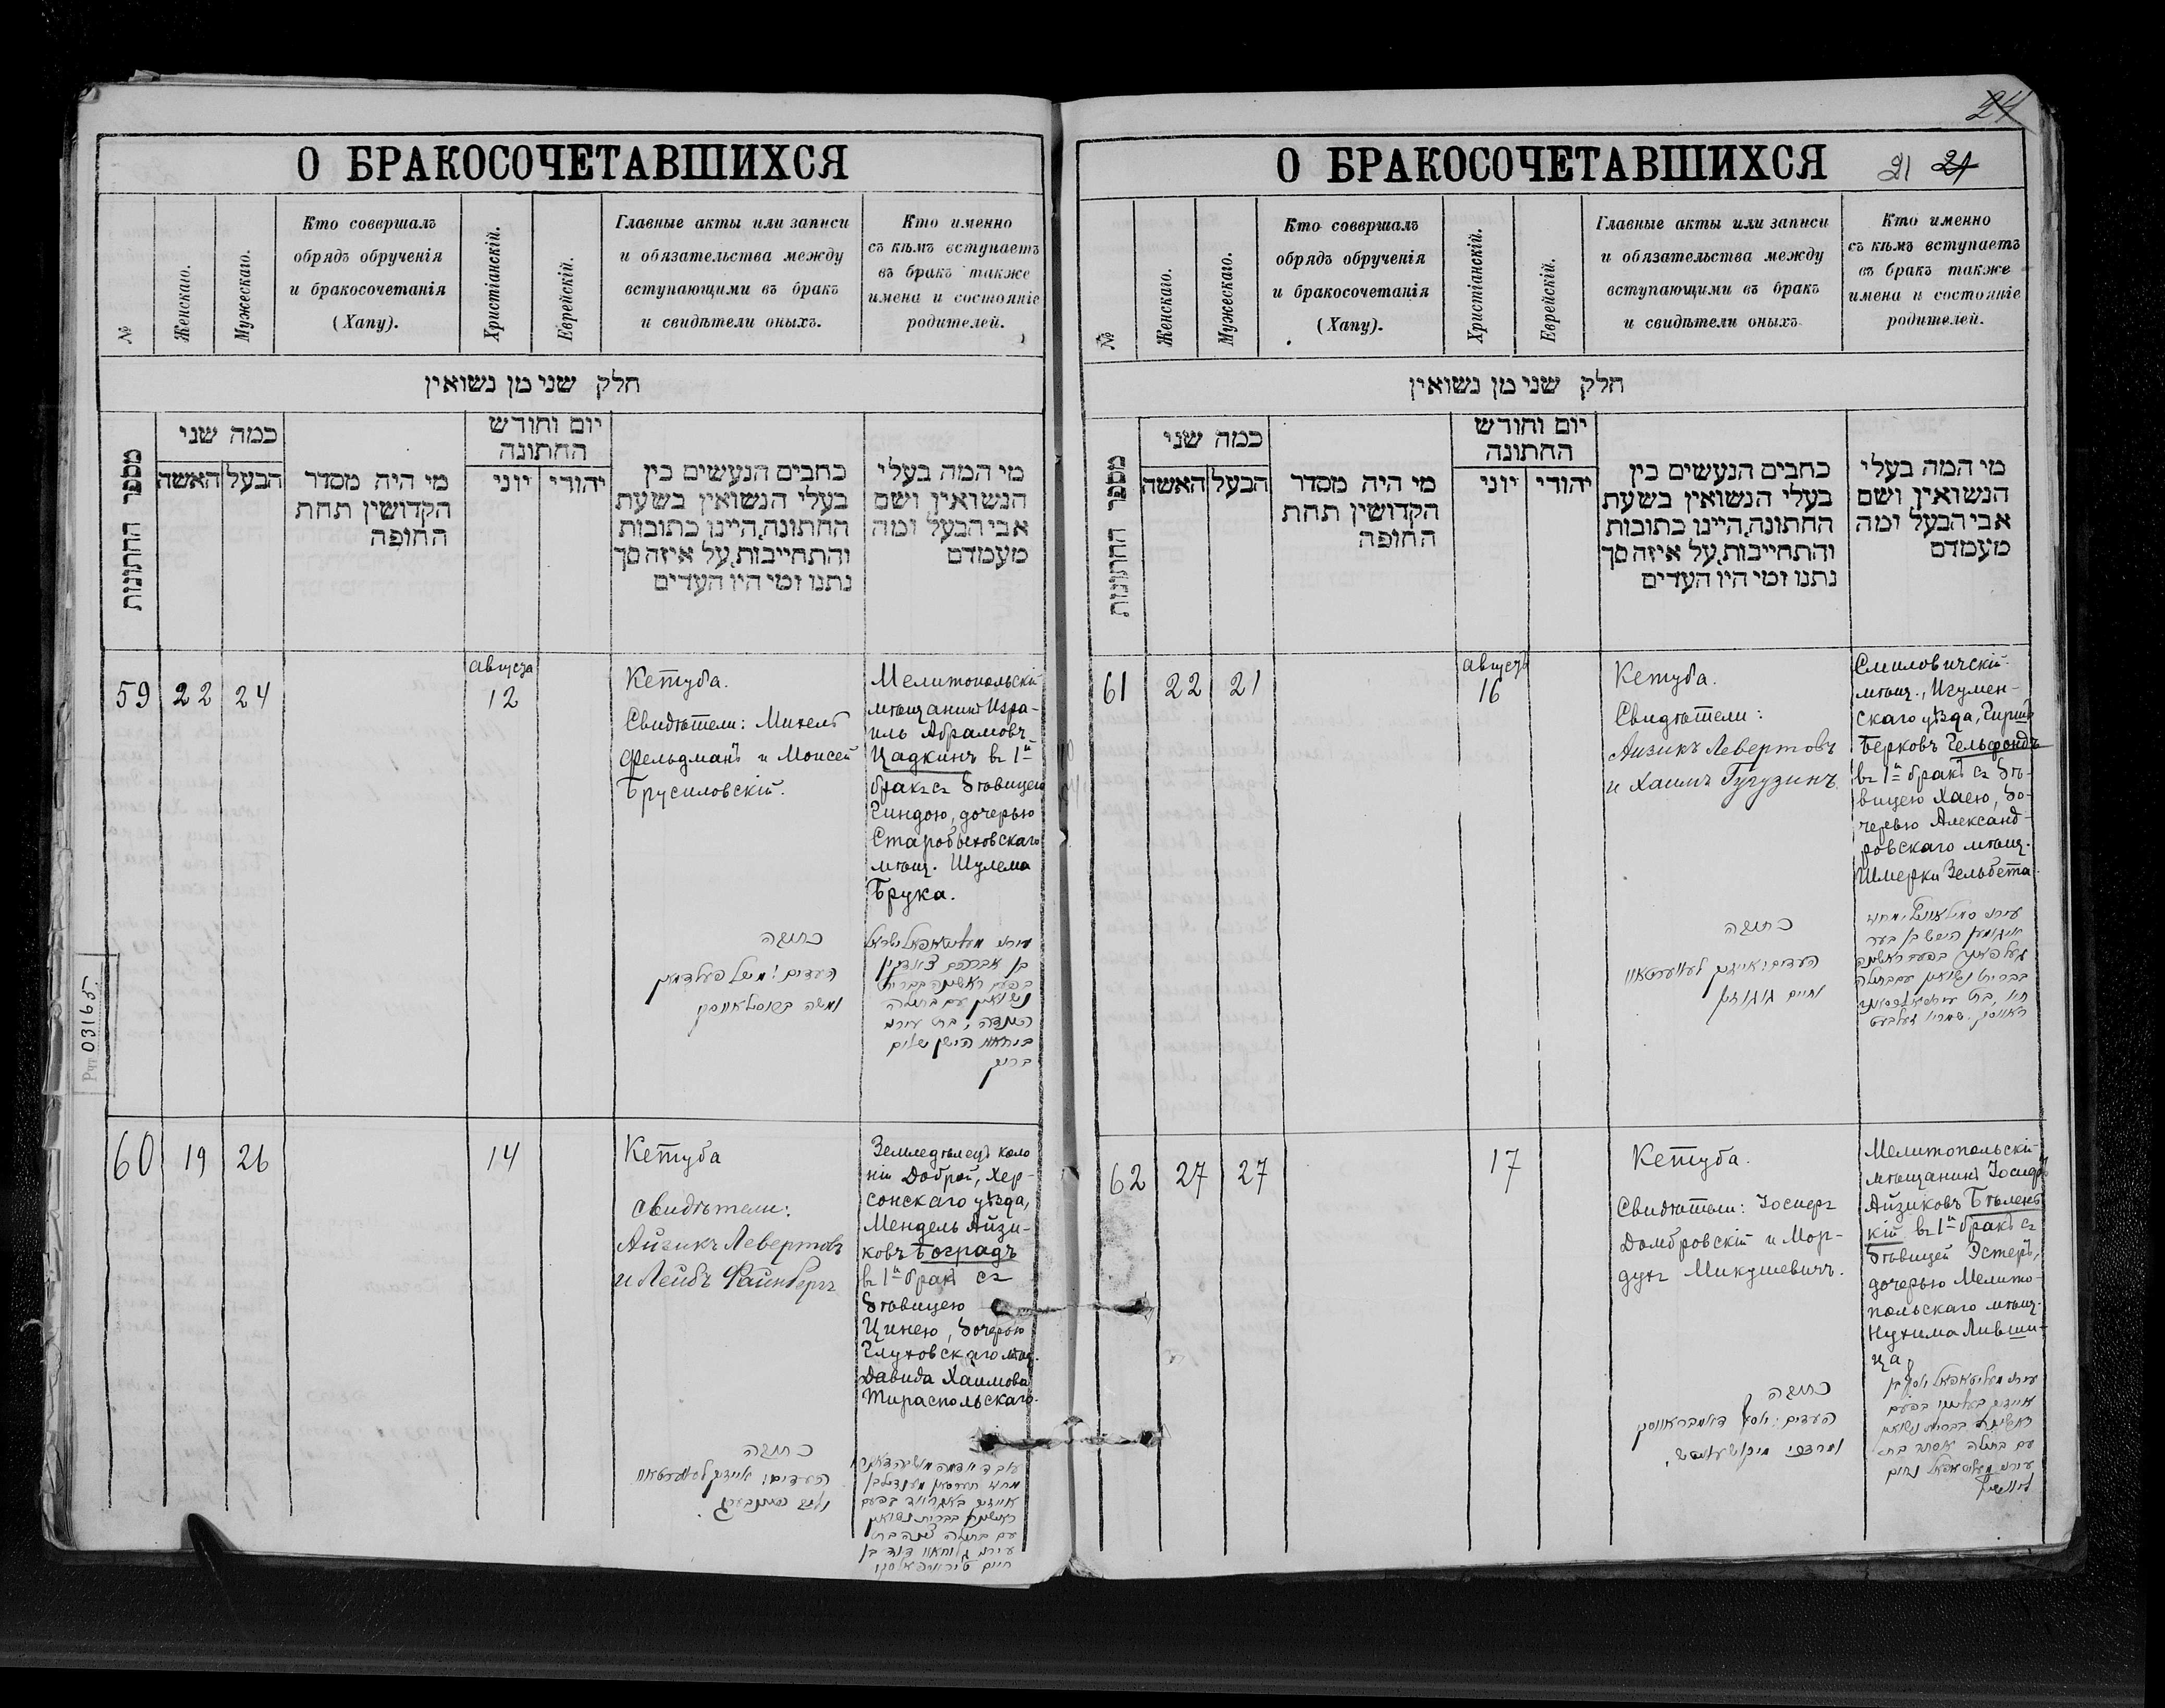 О БРАКОСОЧЕТАВШИХСЯ
№
Женскаго.
Мужескаго.
Кто совершалъ
обрядъ обрученія
и бракосочетанія
(Хапу).
Христіанскій.
Еврейскій.
Главные акты или записи
и обязательства между
вступающими въ бракъ
и свидѣтели оныхъ.
Кто именно
съ кѣмъ вступаетъ
въ бракъ также
имена и состояніе
родителей.
חלק שני מן נשואין
מספר החתונות
כמה שני
האשה
הבעל
מי היה מסדר
הקדושין תחת
החופה
יום וחודש
החתונה
יוני
יהודי
כתבים הנעשים בין
בעלי הנשואין בשעת
החתונה, היינו כתובות
והתחייבות, על איזה סך
נתנו ומי היו העדים
מי המה בעלי
הנשואין ושם
אבי הבעל ומה
מעמדם
59
22
24
августа
12
Кетуба.
Свидѣтели: Михель
Фельдманъ и Моисей
Брусиловскій.
Мелитопольскій
мѣщанинъ Изра-
иль Абрамовъ
Цадкинъ въ 1й
бракъ съ дѣвицею
Гиндою, дочерью
Старобыховскаго
мѣщ. Шулема
Брука.
כתובה
60
19
26
14
Кетуба
Свидѣтели:
Айзикъ Левертовъ
и Лейбъ Файнбергъ
Земледѣлецъ коло
ніи Доброй, Хер-
сонскаго уѣзда,
Мендель Айзи-
ковъ Боградъ
въ 1й бракъ съ
дѣвицею
Цинею, дочерью
Глуховскаго мѣщ.
Давида Хаимова
Тираспольскаго.
כתובה
Рчт 03165
24
О БРАКОСОЧЕТАВШИХСЯ
21 21
№
Женскаго.
Мужескаго.
Кто совершалъ
обрядъ обрученія
и бракосочетанія
(Хапу).
Христіанскій.
Еврейскій.
Главные акты или записи
и обязательства между
вступающими въ бракъ
и свидѣтели оныхъ
Кто именно
съ кѣмъ вступаетъ
въ бракъ также
имена и состояніе
родителей.
חלק שני מן נשואין
מספר החתונות
כמה שני
האשה
הבעל
מי היה מסדר
הקדושין תחת
החופה
יום וחודש
החתונה
יוני
יהודי
כתבים הנעשים בין
בעלי הנשואין בשעת
החתונה, היינו כתובות
והתחייבות, על איזה סך
נתנו ומי היו העדים
מי המה בעלי
הנשואין ושם
אבי הבעל ומה
מעמדם
61
22
21
августъ
16
Кетуба.
Свидѣтели:
Айзикъ Левертовъ
и Хаимъ Гугузинъ.
Смиловичскій
мѣщ., Игумен-
скаго уѣзда, Гиршъ
Берковъ Гельфондъ
въ 1й бракъ съ дѣ-
вицею Хаею, до-
черью Александ-
ровскаго мѣщ.
Шмерки Зельбета.
כתובה
62
27
27
17
Кетуба.
Свидѣтели: Іосифъ
Домбровскій и Мор-
духъ Микушевичъ.
Мелитопольскій
мѣщанинъ Іосифъ
Айзиковъ Бѣлень-
кій въ 1й бракъ съ
дѣвицей Эстеръ,
дочерью Мелито-
польскаго мѣщ.
Нухима Ливши-
ца.
כתובה